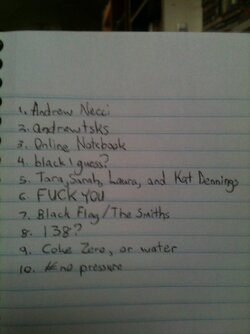 1. Andrew Necci
2. andrewtsks
3. Online Notebook
4. black I guess?
5. Tara, Sarah, Laura, and Kat Dennings
6. FUCK YOU
7. Black Flag/The Smiths
8. 138?
9. Coke Zero, or water
10. #no pressure